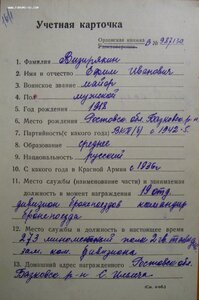 Учетная карточка
Орденская книжка
Удостоверение В № 927130
1. Фамилия
2. Имя и отчество Ефим Иванович
3. Воинское звание майор
4. Пол мужской
5. Год рождения 1918
6. Место рождения Ростовск. обл. р-н
7. Партийность (с какого года) ВКП(б) с 1942 г.
8. Образование среднее
9. Национальность русский
10. С какого года в Красной Армии с 1936г
11. Место службы (наименование части) и занимаемая
должность в момент награждения 19 отд.
дивизион бронепоездов командир
бронепоезда
12. Место службы и должность в настоящее время
273 минометный полк
зам. ком. дивизиона
13. Домашний адрес награжденного Ростовск. обл.
р-н с.
(См. об.)